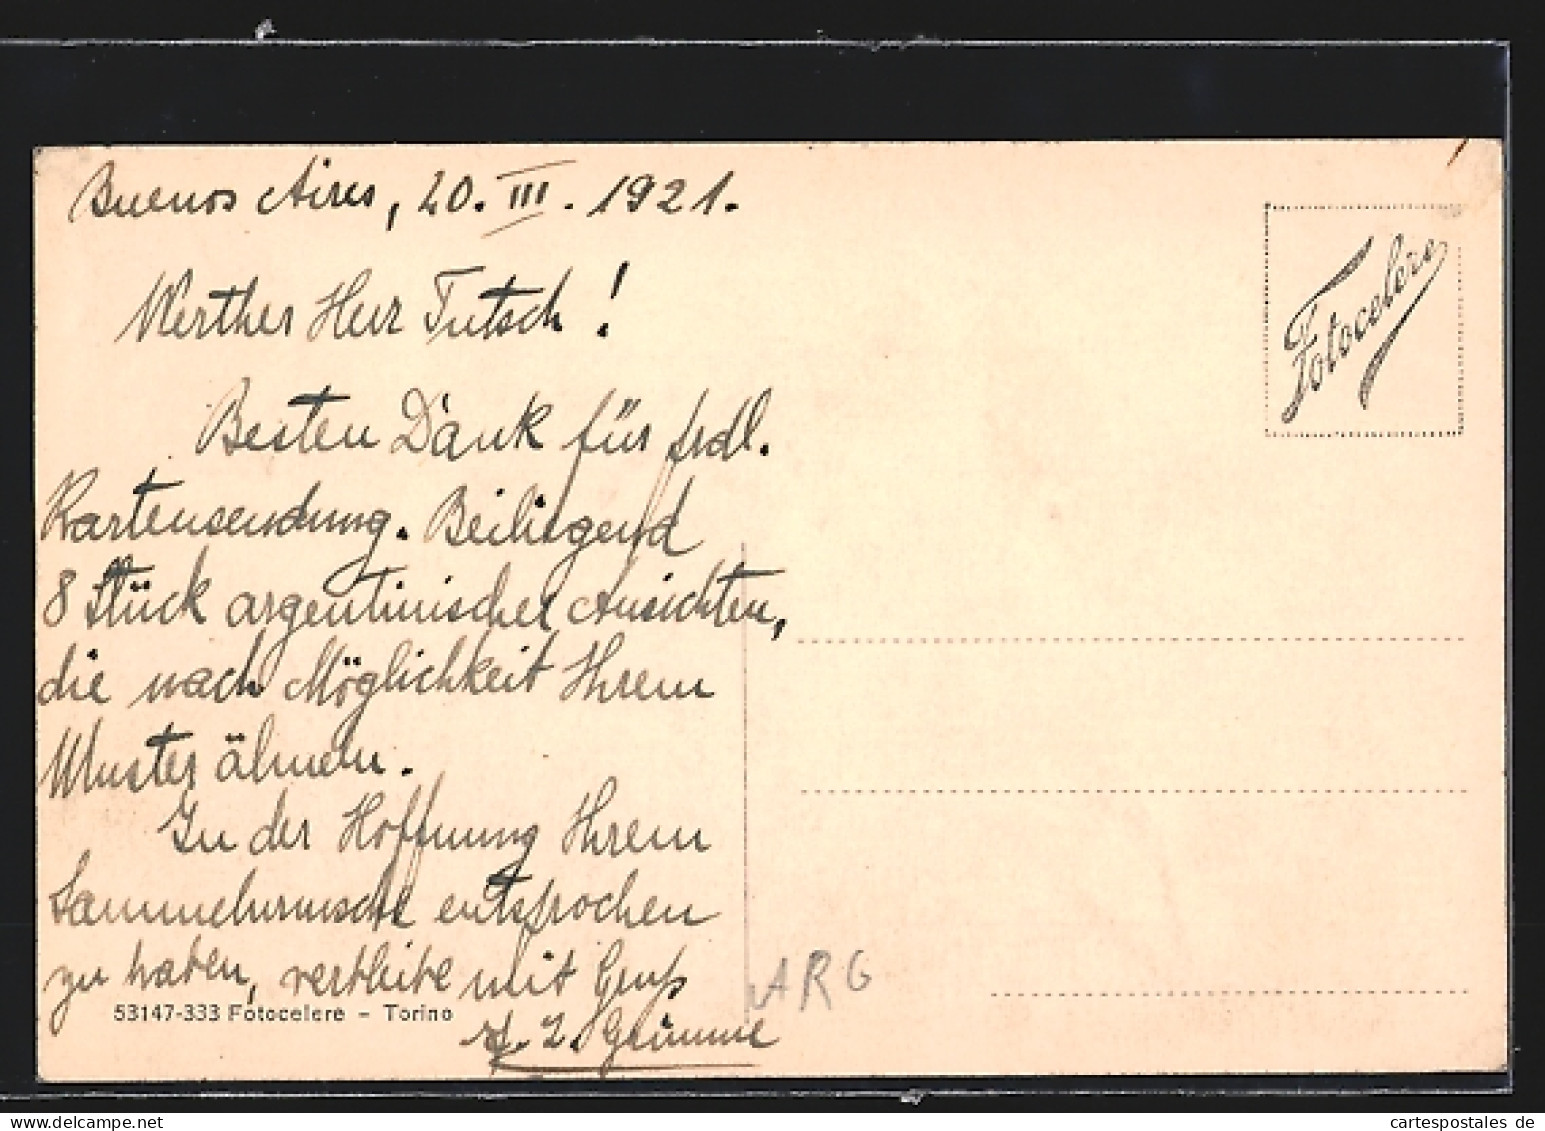 Buenos Aires, 20. III. 1921.
Werther Herr Tutsch!
Besten Dank für frdl.
Kartensendung. Beiliegend
8 Stück argentinischer Ansichten,
die nach Möglichkeit Ihrem
Muster älmeln.
In der Hoffnung Ihrem
Sammelwunsche entsprochen
zu haben, verbleibe mit Gruß
Grimme
53147-333 Fotocelere - Torino
Fotocelere
ARG
cartespostales de